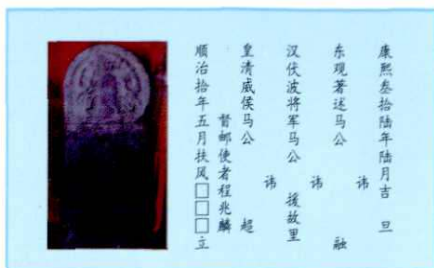 康熙叁拾陆年陆月吉　旦
东观著述马公　讳　融
汉伏波将军马公　讳　援故里
皇清威侯马公　讳　超
督邮使者程兆麟
顺治拾年五月扶风□□□立